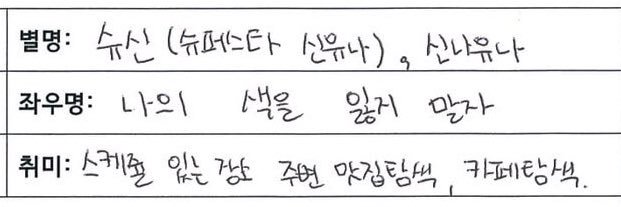 별명: 슈신 (슈퍼스타 신유나), 신나유나
좌우명: 나의 색을 잃지 말자
취미: 스케줄 있는 장소 주변 맛집탐색, 카페탐색.